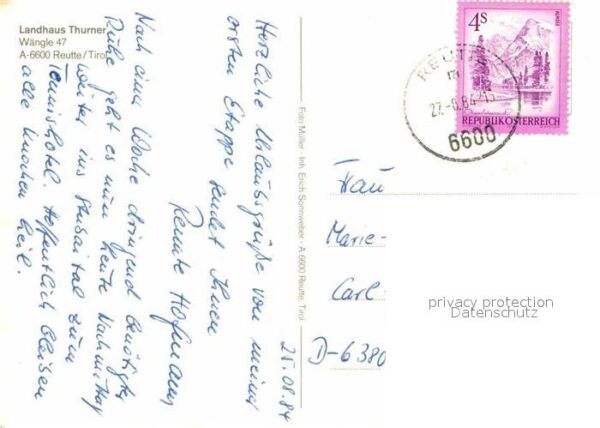 Landhaus Thurner
Wängle 47
A-6600 Reutte/Tirol
25.08.84
Herzliche Urlaubsgrüße von meiner
ersten Etappe sendet Ihnen
Renate Hofmann
Nach einer Woche dringend benötigter
Ruhe geht es nun heute Nachmittag
weiter ins Stubaital zum
Tennishotel. Hoffentlich bleiben
alle Knochen heil.
Foto Müller - Inh. Erich Sonnweber - A 6600 Reutte, Tirol
4S
REPUBLIK ÖSTERREICH
REUTTE
27.-8.84-15
6600
Frau
Marie-
Carl-
D-6380
privacy protection
Datenschutz